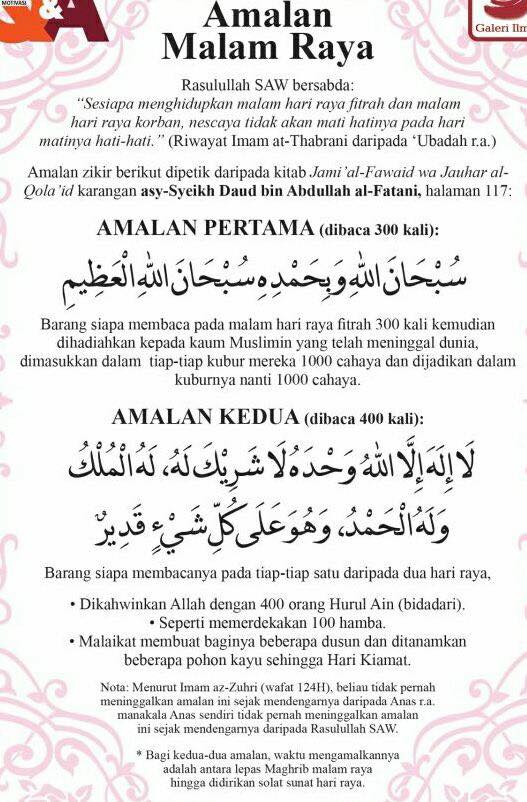 MOTIVASI
Q&A
Galeri Ilm
Amalan
Malam Raya
Rasulullah SAW bersabda:
“Sesiapa menghidupkan malam hari raya fitrah dan malam
hari raya korban, nescaya tidak akan mati hatinya pada hari
matinya hati-hati.” (Riwayat Imam at-Thabrani daripada ‘Ubadah r.a.)
Amalan zikir berikut dipetik daripada kitab Jami’al-Fawaid wa Jauhar al-
Qola’id karangan asy-Syeikh Daud bin Abdullah al-Fatani, halaman 117:
AMALAN PERTAMA (dibaca 300 kali):
سُبْحَانَ اللهِ وَبِحَمْدِهِ سُبْحَانَ اللهِ الْعَظِيمِ
Barang siapa membaca pada malam hari raya fitrah 300 kali kemudian
dihadiahkan kepada kaum Muslimin yang telah meninggal dunia,
dimasukkan dalam tiap-tiap kubur mereka 1000 cahaya dan dijadikan dalam
kuburnya nanti 1000 cahaya.
AMALAN KEDUA (dibaca 400 kali):
لَا إِلَهَ إِلَّا اللهُ وَحْدَهُ لَا شَرِيْكَ لَهُ، لَهُ الْمُلْكُ
وَلَهُ الْحَمْدُ، وَهُوَ عَلَى كُلِّ شَيْءٍ قَدِيرٌ
Barang siapa membacanya pada tiap-tiap satu daripada dua hari raya,
• Dikahwinkan Allah dengan 400 orang Hurul Ain (bidadari).
• Seperti memerdekakan 100 hamba.
• Malaikat membuat baginya beberapa dusun dan ditanamkan
beberapa pohon kayu sehingga Hari Kiamat.
Nota: Menurut Imam az-Zuhri (wafat 124H), beliau tidak pernah
meninggalkan amalan ini sejak mendengarnya daripada Anas r.a.
manakala Anas sendiri tidak pernah meninggalkan amalan
ini sejak mendengarnya daripada Rasulullah SAW.
* Bagi kedua-dua amalan, waktu mengamalkannya
adalah antara lepas Maghrib malam raya
hingga didirikan solat sunat hari raya.